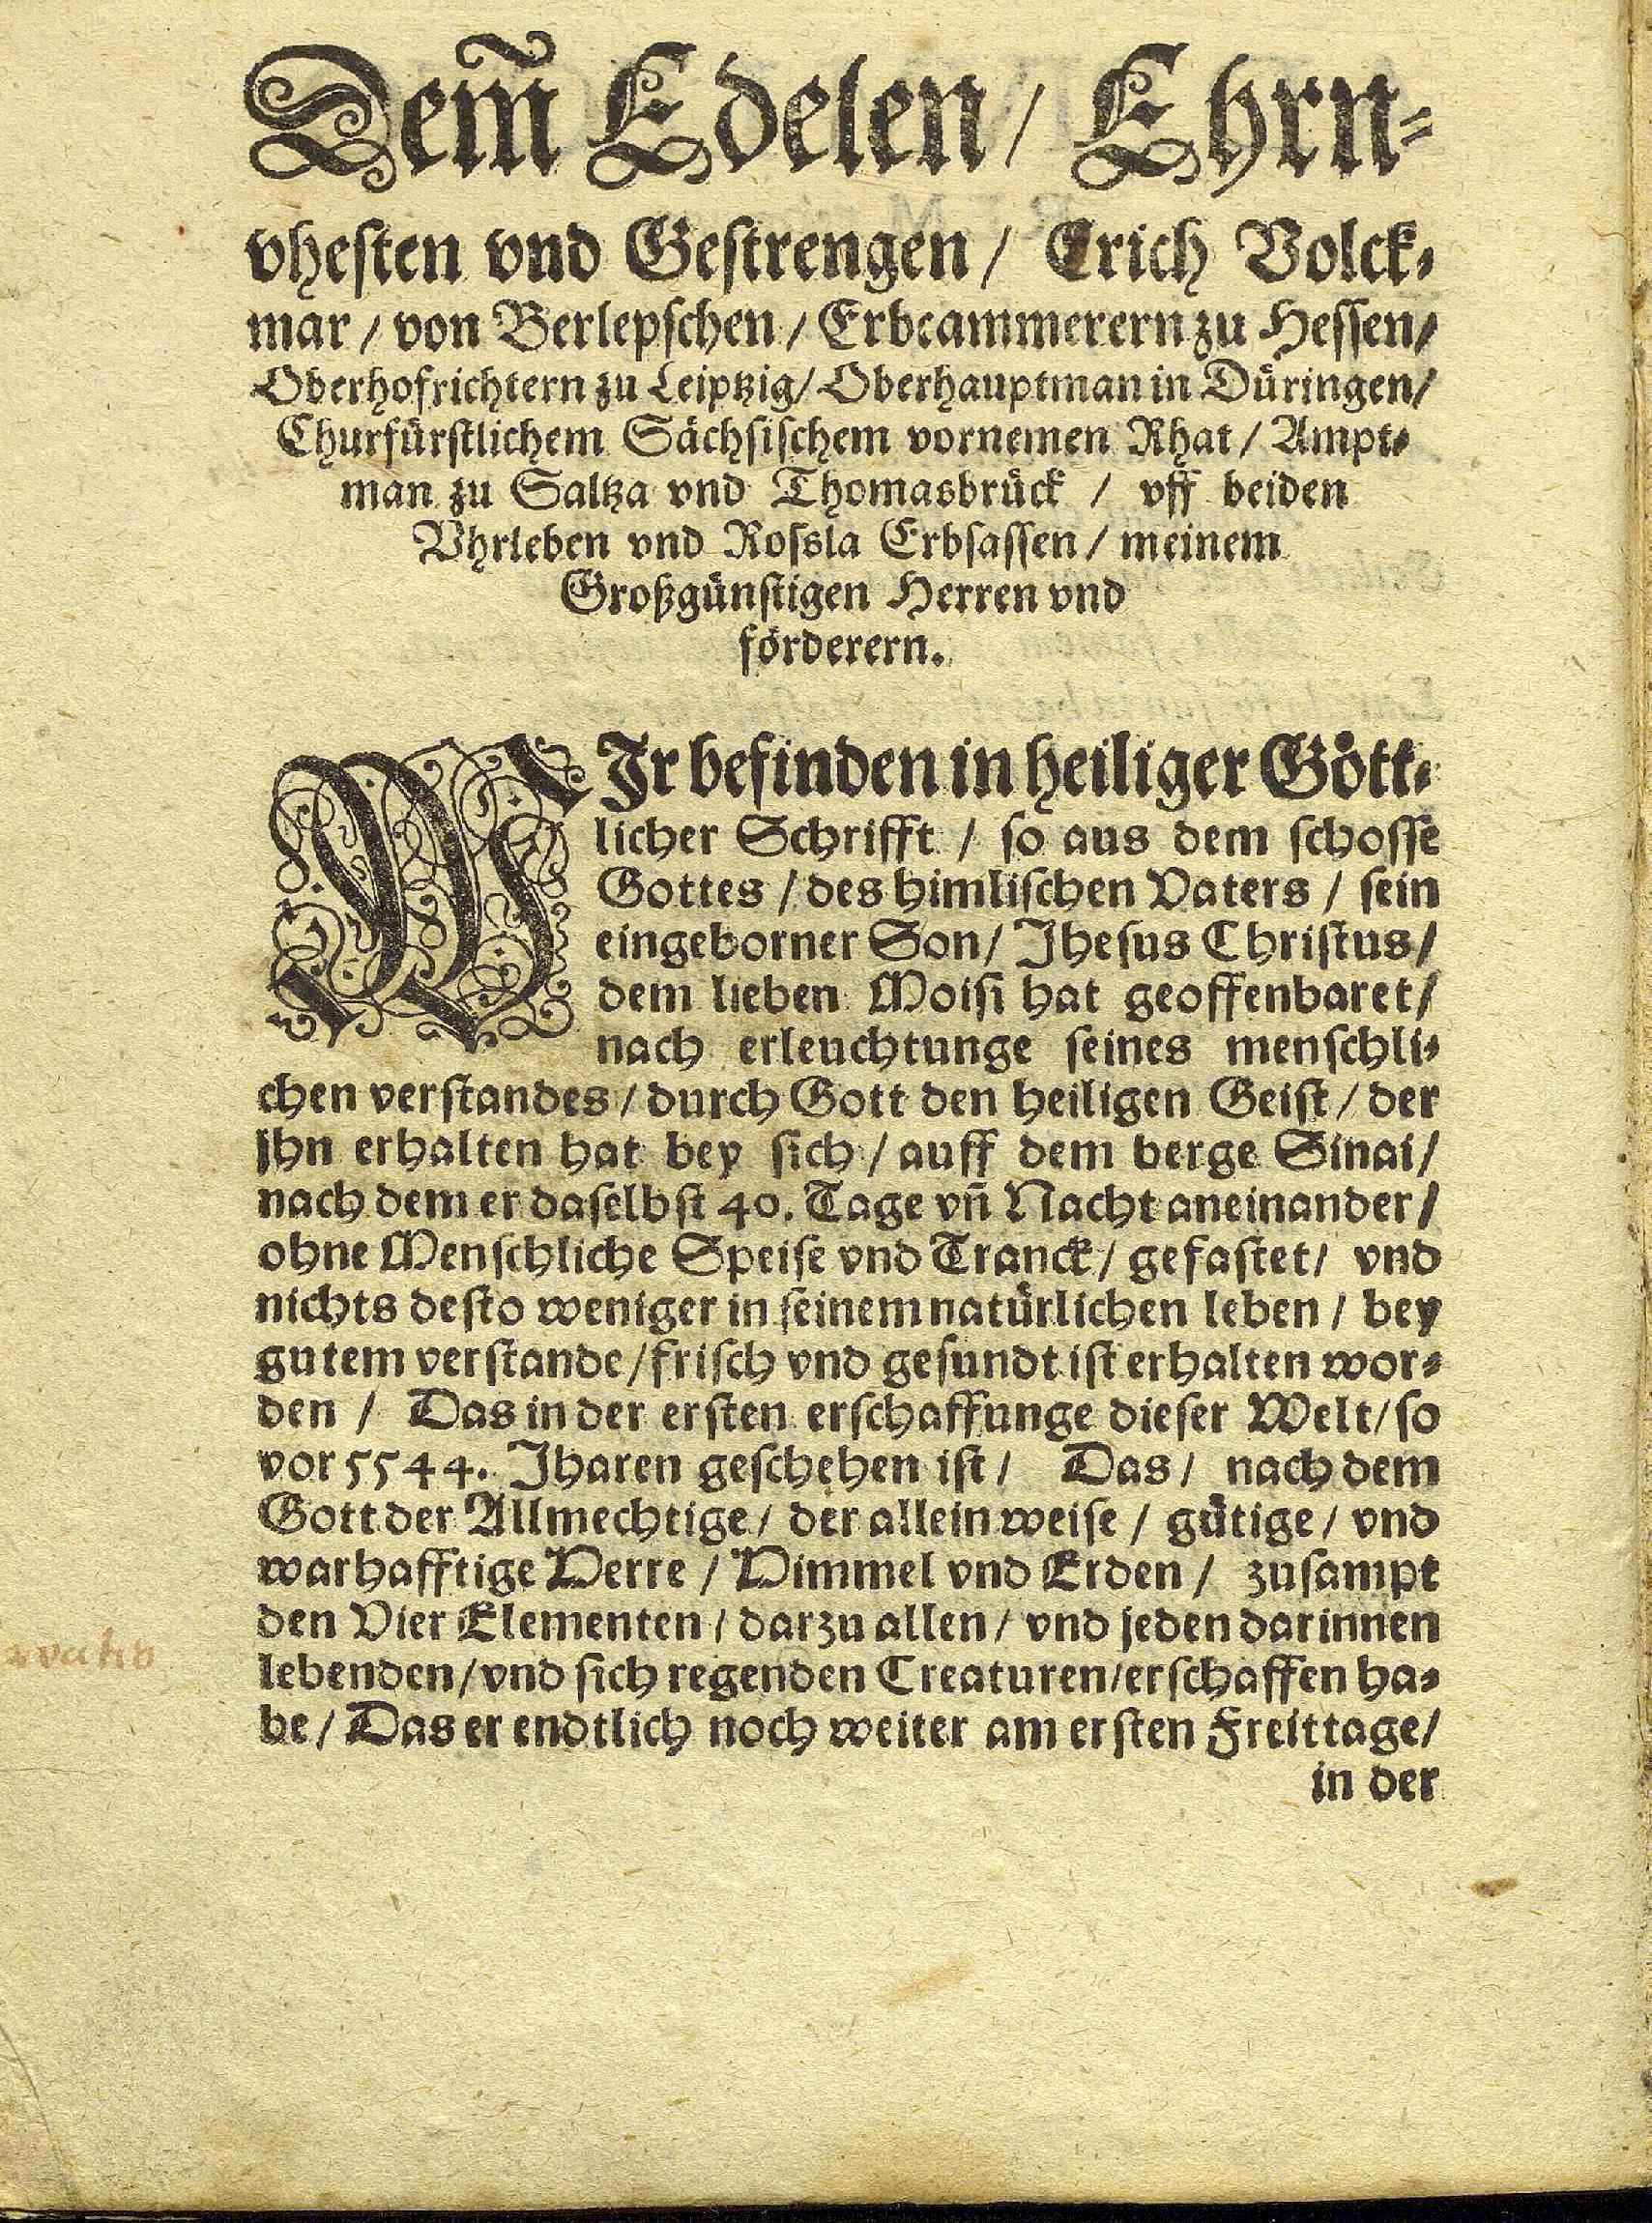 Dem̃ Edelen/ Ehrn-
vhesten vnd Gestrengen/ Erich Volck-
mar/ von Berlepschen/ Erbcammerern zu Hessen/
Oberhofrichtern zu Leiptzig/ Oberhauptman in Düringen/
Churfürstlichem Sächsischem vornemen Rhat/ Ampt-
man zu Saltza vnd Thomasbrück / vff beiden
Vhrleben vnd Rossla Erbsassen/ meinem
Großgünstigen Herren vnd
förderern.
WIr befinden in heiliger Gött-
licher Schrifft / so aus dem schosse
Gottes / des himlischen Vaters / sein
eingeborner Son/ Jhesus Christus/
dem lieben Moisi hat geoffenbaret/
nach erleuchtunge seines menschli-
chen verstandes/ durch Gott den heiligen Geist/ der
jhn erhalten hat bey sich/ auff dem berge Sinai/
nach dem er daselbst 40. Tage vñ Nacht aneinander/
ohne Menschliche Speise vnd Tranck/ gefastet/ vnd
nichts desto weniger in seinem natürlichen leben / bey
gutem verstande/ frisch vnd gesundt ist erhalten wor-
den / Das in der ersten erschaffunge dieser Welt/ so
vor 5544. Jharen geschehen ist/ Das/ nach dem
Gott der Allmechtige/ der allein weise / gütige/ vnd
warhafftige Herre / Himmel vnd Erden / zusampt
den Vier Elementen / darzu allen/ vnd jeden darinnen
lebenden/ vnd sich regenden Creaturen/ erschaffen ha-
be/ Das er endtlich noch weiter am ersten Freittage/
in der